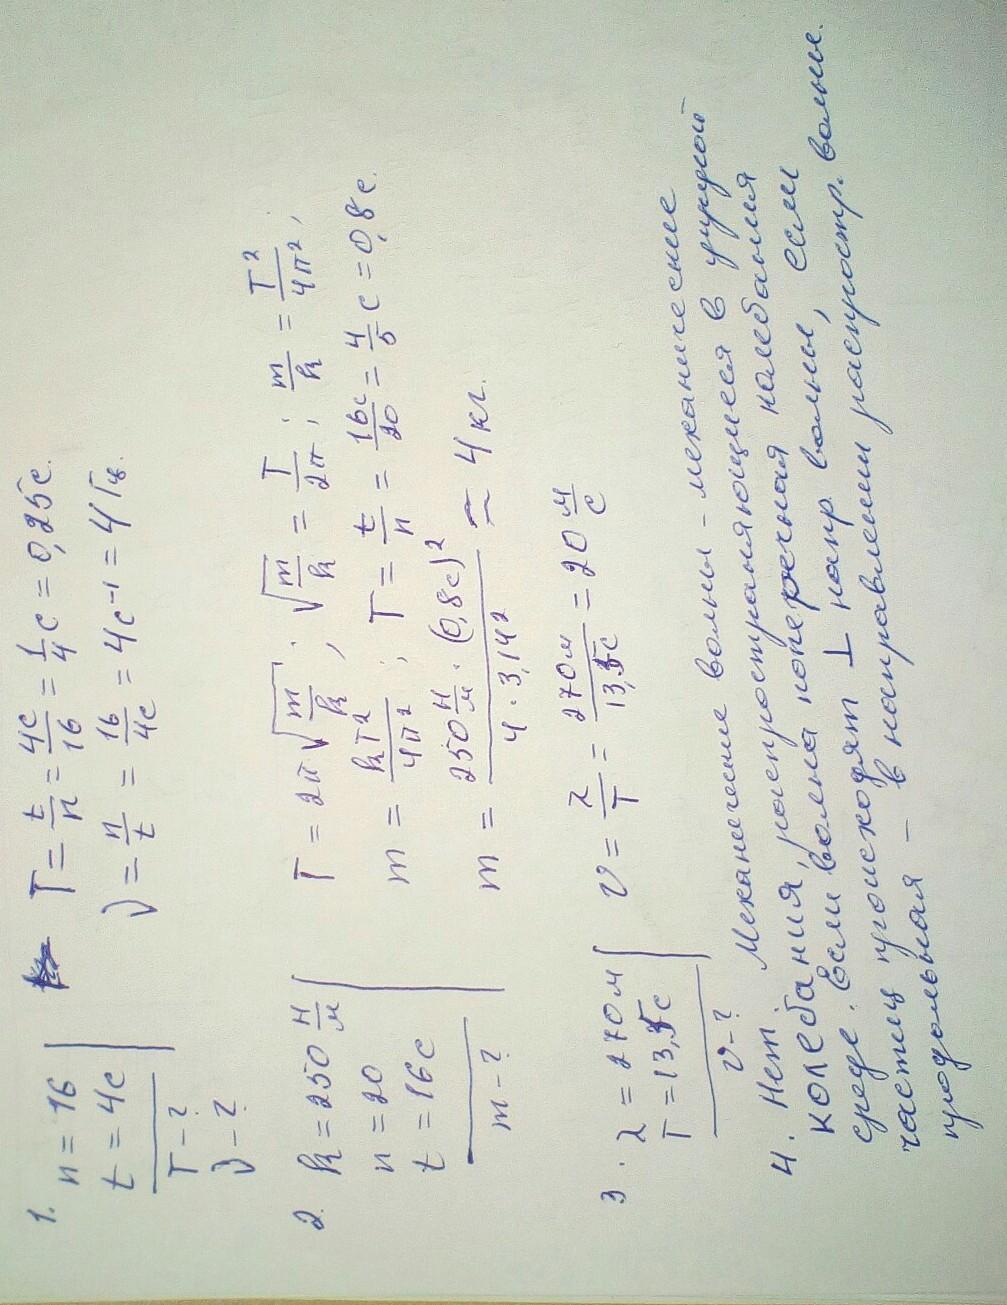 1. n = 16
t = 4с
T - ?
ν - ?
T = t/n = 4с/16 = 1/4 с = 0,25с.
ν = n/t = 16/4с = 4с⁻¹ = 4Гц.
2. k = 250 Н/м
n = 20
t = 16с
m - ?
T = 2π√(m/k); √(m/k) = T/2π; m/k = T²/4π²;
m = kT²/4π²; T = t/n = 16с/20 = 4/5 с = 0,8с.
m = 250 Н/м · (0,8с)²/4 · 3,14² ≈ 4 кг.
3. λ = 270м
T = 13,5с
v - ?
v = λ/T = 270м/13,5с = 20 м/с
4. Нет. Механические волны - механические
колебания, распространяющиеся в упругой
среде. Если волна поперечная колебания
частиц происходят ⊥ напр. волны, если
продольная - в направлении распростр. волны.